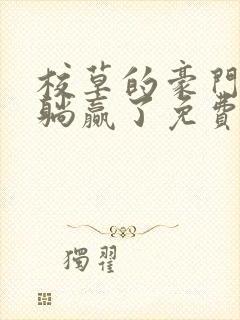 校草的豪門
躺贏了免費
獨翟